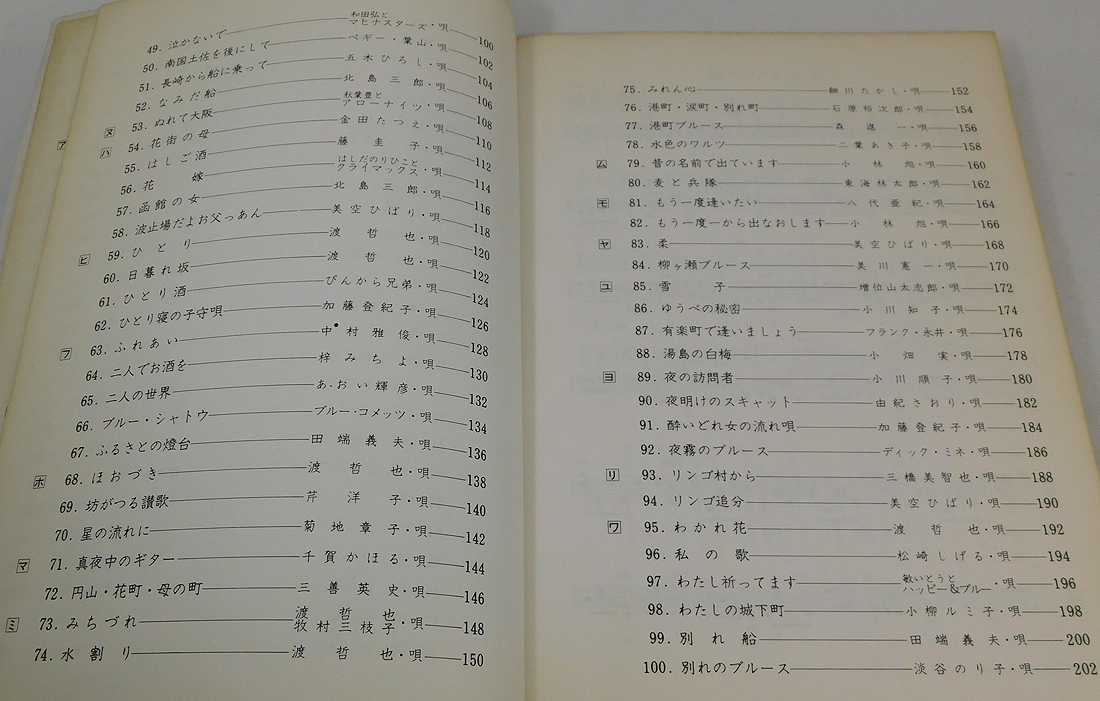 49. 泣かないで 和田弘とマヒナスターズ・唄 100
50. 南国土佐を後にして ペギー・葉山・唄 102
51. 長崎から船に乗って 五木ひろし・唄 104
52. なみだ船 北島三郎・唄 106
ヌ 53. ぬれて大阪 秋葉豊とアローナイツ・唄 108
ハ 54. 花街の母 金田たつえ・唄 110
55. はしご酒 藤圭子・唄 112
56. 花嫁 はしだのりひことクライマックス・唄 114
57. 函館の女 北島三郎・唄 116
58. 波止場だよお父っあん 美空ひばり・唄 118
ヒ 59. ひとり 渡哲也・唄 120
60. 日暮れ坂 渡哲也・唄 122
61. ひとり酒 ぴんから兄弟・唄 124
62. ひとり寝の子守唄 加藤登紀子・唄 126
フ 63. ふれあい 中村雅俊・唄 128
64. 二人でお酒を 梓みちよ・唄 130
65. 二人の世界 あ.おい輝彦・唄 132
66. ブルー・シャトウ ブルー・コメッツ・唄 134
67. ふるさとの燈台 田端義夫・唄 136
ホ 68. ほおづき 渡哲也・唄 138
69. 坊がつる讃歌 芹洋子・唄 140
70. 星の流れに 菊地章子・唄 142
マ 71. 真夜中のギター 千賀かほる・唄 144
72. 円山・花町・母の町 三善英史・唄 146
ミ 73. みちづれ 渡哲也 牧村三枝子・唄 148
74. 水割り 渡哲也・唄 150
75. みれん心 細川たかし・唄 152
76. 港町・涙町・別れ町 石原裕次郎・唄 154
77. 港町ブルース 森進一・唄 156
78. 水色のワルツ 二葉あき子・唄 158
ム 79. 昔の名前で出ています 小林旭・唄 160
80. 麦と兵隊 東海林太郎・唄 162
モ 81. もう一度逢いたい 八代亜紀・唄 164
82. もう一度一から出なおします 小林旭・唄 166
ヤ 83. 柔 美空ひばり・唄 168
84. 柳ヶ瀬ブルース 美川憲一・唄 170
ユ 85. 雪子 増位山太志郎・唄 172
86. ゆうべの秘密 小川知子・唄 174
87. 有楽町で逢いましょう フランク・永井・唄 176
88. 湯島の白梅 小畑実・唄 178
ヨ 89. 夜の訪問者 小川順子・唄 180
90. 夜明けのスキャット 由紀さおり・唄 182
91. 酔いどれ女の流れ唄 加藤登紀子・唄 184
92. 夜霧のブルース ディック・ミネ・唄 186
リ 93. リンゴ村から 三橋美智也・唄 188
94. リンゴ追分 美空ひばり・唄 190
ワ 95. わかれ花 渡哲也・唄 192
96. 私の歌 松崎しげる・唄 194
97. わたし祈ってます 敏いとうとハッピー&ブルー・唄 196
98. わたしの城下町 小柳ルミ子・唄 198
99. 別れ船 田端義夫・唄 200
100. 別れのブルース 淡谷のり子・唄 202